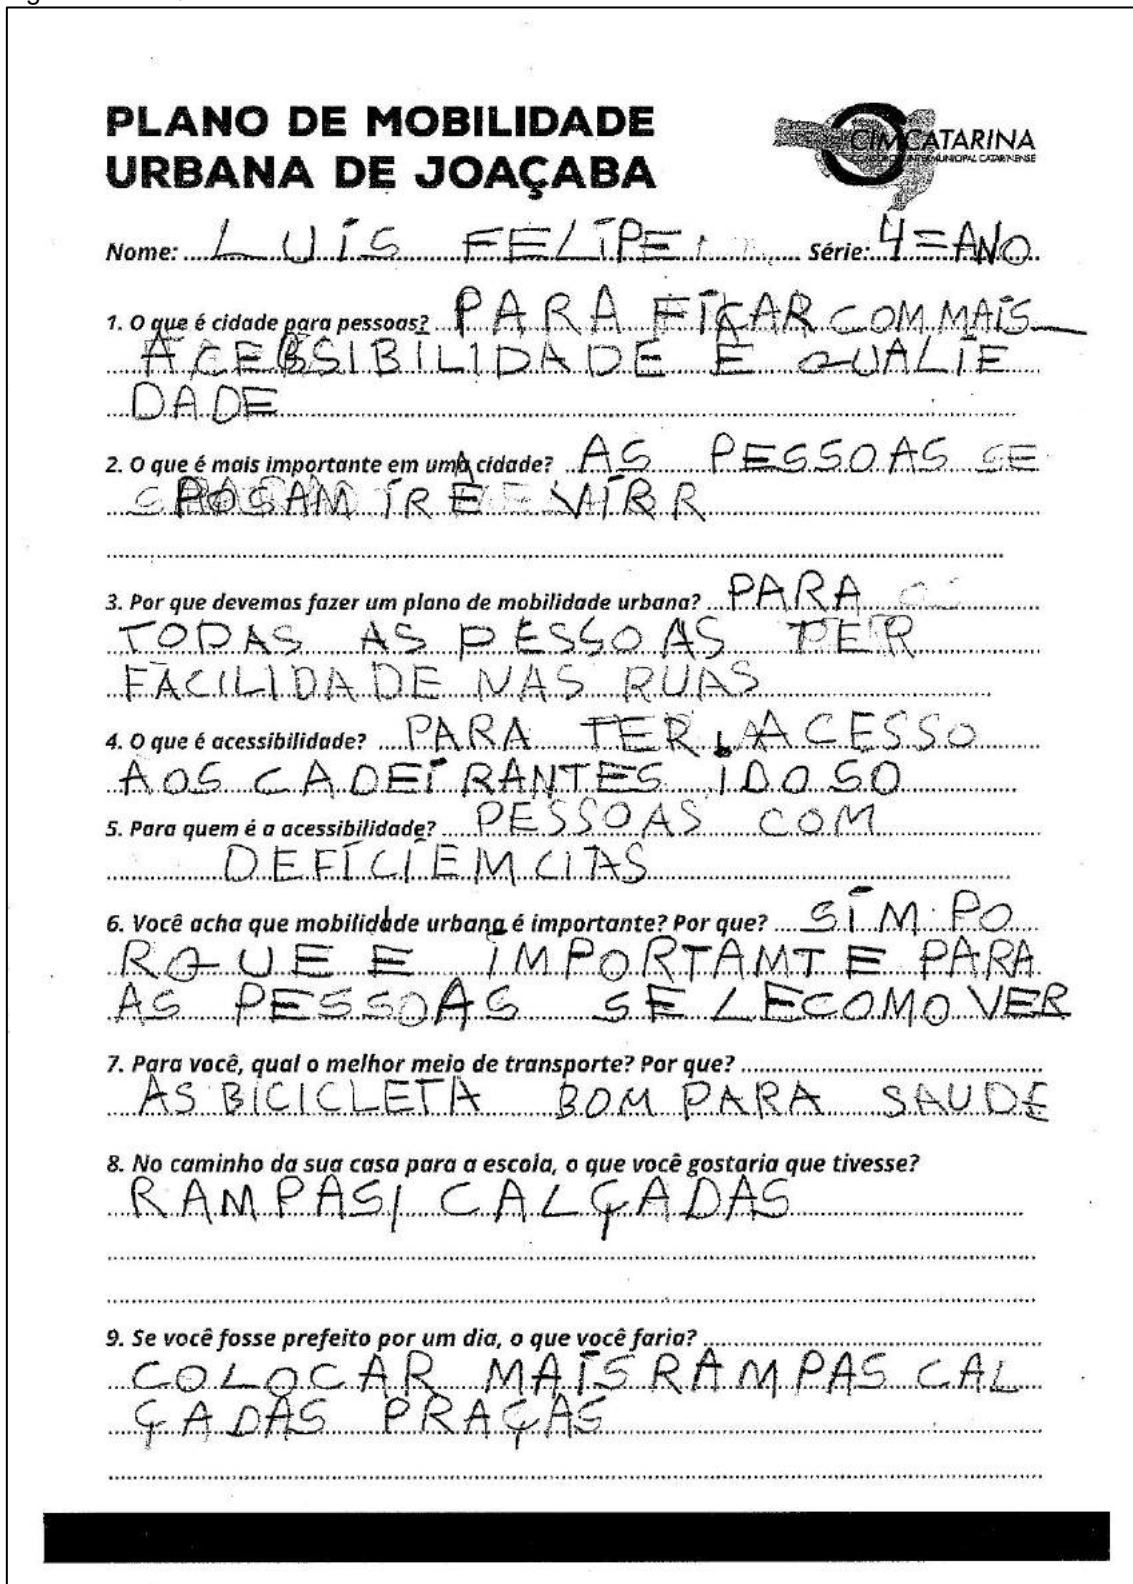 PLANO DE MOBILIDADE
URBANA DE JOAÇABA
CIMCATARINA
CONSÓRCIO INTERMUNICIPAL CATARINENSE
Nome: LUIS FELIPE Série: 4= ANO
1. O que é cidade para pessoas? PARA FICAR COM MAIS
ACESSIBILIDADE E QUALIE
DADE
2. O que é mais importante em uma cidade? AS PESSOAS SE
POSAM IR E VIRR
3. Por que devemos fazer um plano de mobilidade urbana? PARA
TODAS AS PESSOAS TER
FACILIDADE NAS RUAS
4. O que é acessibilidade? PARA TER ACESSO
AOS CADEIRANTES IDOSO
5. Para quem é a acessibilidade? PESSOAS COM
DEFICIEMCIAS
6. Você acha que mobilidade urbana é importante? Por que? SIM PO
RQUE E IMPORTAMTE PARA
AS PESSOAS SE LECOMOVER
7. Para você, qual o melhor meio de transporte? Por que?
AS BICICLETA BOM PARA SAUDE
8. No caminho da sua casa para a escola, o que você gostaria que tivesse?
RAMPAS, CALÇADAS
9. Se você fosse prefeito por um dia, o que você faria?
COLOCAR MAIS RAMPAS CAL
ÇADAS PRAÇAS